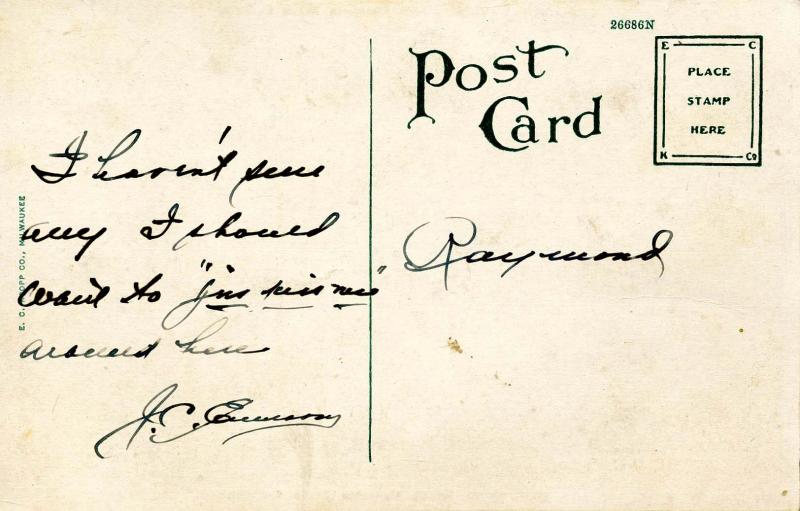 26686N
Post
Card
E C
PLACE
STAMP
HERE
K Co
I haven't seen
any I should
want to "jus kiss mee"
around here
J. C. Emerson
Raymond
E. C. KROPP CO., MILWAUKEE